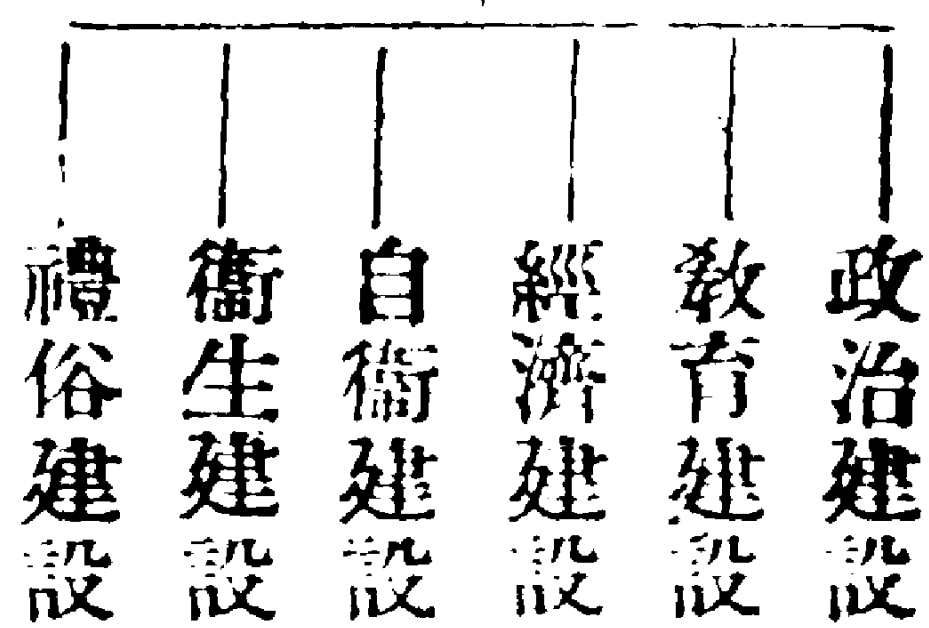 政治建設
教育建設
經濟建設
自衞建設
衞生建設
禮俗建設